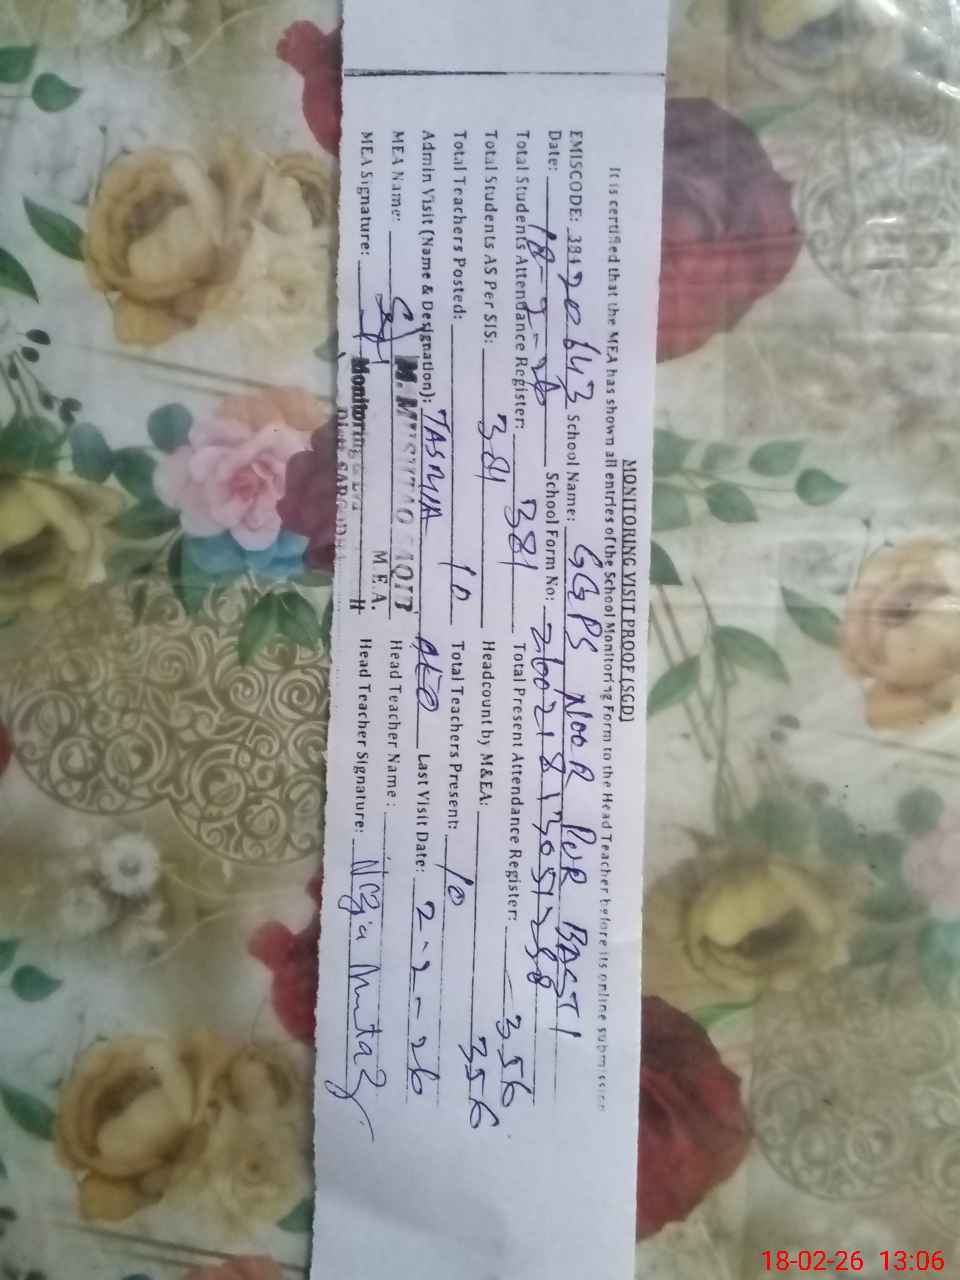 MONITORING VISIT PROOF (SGD)
It is certified that the MEA has shown all entries of the School Monitoring Form to the Head Teacher before its online submission
EMISCODE: 38420643 School Name: GGPS NOOR PUR BASTI
Date: 18-2-26 School Form No:
Total Students Attendance Register: 381 Total Present Attendance Register: 356
Total Students AS Per SIS: 381 Headcount by M&EA: 356
Total Teachers Posted: 10 Total Teachers Present: 10
Admin Visit (Name & Designation): TASMIA AEO Last Visit Date: 2-2-26
MEA Name: M. MUSHTAQ SAQIT M.E.A. Head Teacher Name:
MEA Signature: Monitoring Head Teacher Signature:
18-02-26 13:06